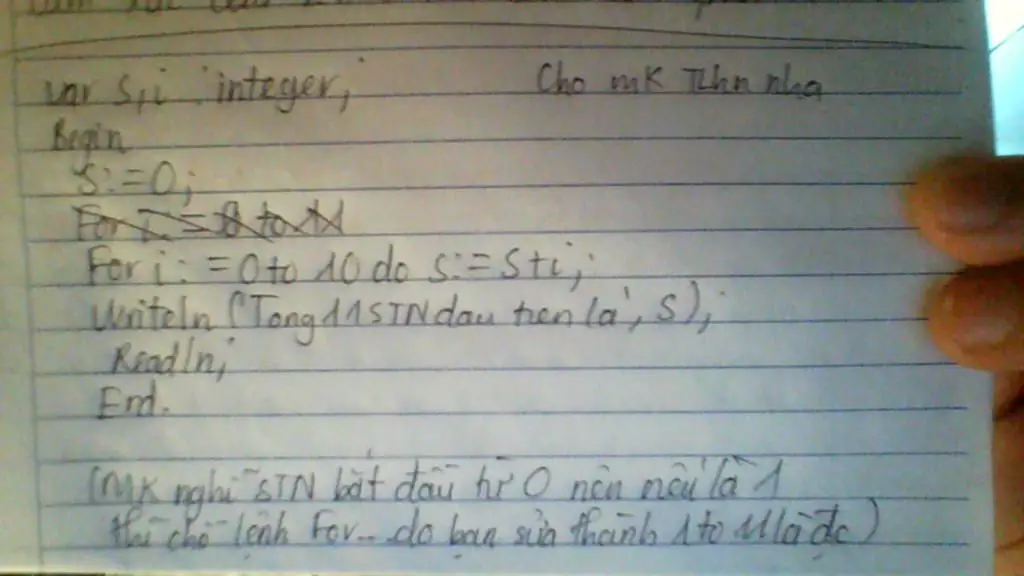 var s,i : integer; Cho mK Tlhn nha
Begin
S:=0;
For i:=0 to 10 do s:=s+i;
Writeln ('Tong 11 STN dau tien la', S);
Readln;
End.
(MK nghĩ STN bắt đầu từ 0 nên nếu là 1
thì chỗ lệnh For... do bạn sửa thành 1 to 11 là đc)